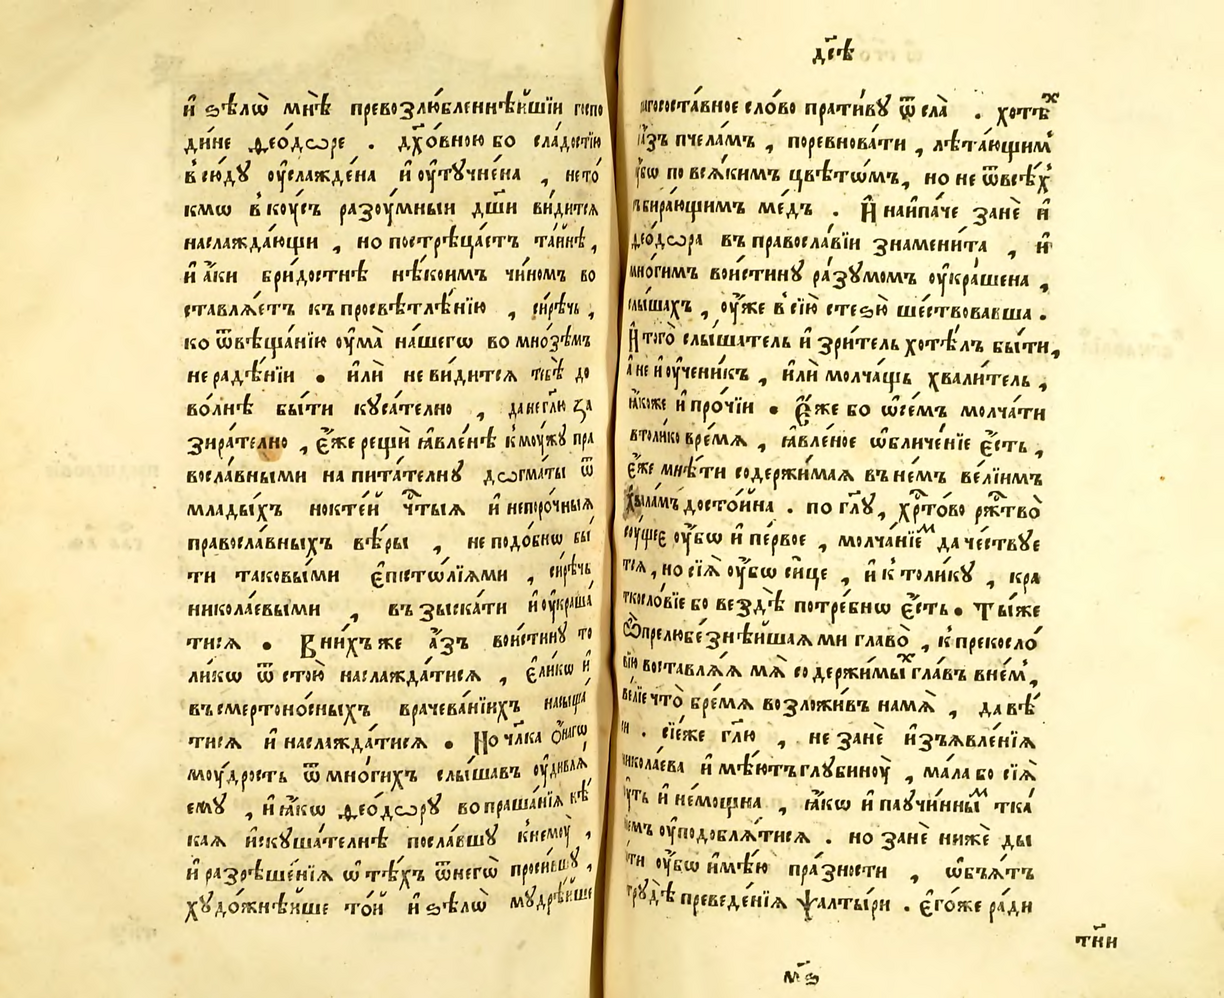 и҆ ѕѣлѡ̀ мнѣ̀ превозлю́бленнѣйшїи госпо
ди́не ѳео́дѡре . дх҃о́вною бо сла́достїю
всю́дꙋ оу҆слажде́на и҆ оу҆тꙋчне́на , не то́
кмѡ в коу́съ разоу́мныи дш҃и ви́дится
наслажда́ющи , но пострѣца́етъ та́йнѣ ,
и҆ а҆́ки бри́достнѣ нѣ́коимъ чи́номъ во
ставлѧ́етъ къ просвѣтлѣ́нїю , си́рѣчь ,
ко ѿвѣща́нїю оу҆ма̀ на́шегѡ во мно́зѣмъ
не радѣ́нїи . и҆лѝ не ви́дится тебѣ̀ до
во́лнѣ бы́ти кꙋса́телно , да не гл҃ю за
зира́телно , є҆́же рещѝ ꙗ҆вле́нѣ к моу́жꙋ пра
восла́вными на пита́телнꙋ дѡгма́ты ѿ
млады́хъ ноктє́й чт҃ыѧ и҆ непоро́чныѧ
правосла́вныхъ вѣ́ры , не подо́бнѡ бы́
ти таковы́ми є҆пїстѡ́лїѧми , си́рѣчь
никола́евыми , въ зыска́ти и҆ оу҆краша́
тисѧ . В ни́хъ же а҆́зъ вои́стинꙋ то
ли́кѡ ѿстою̀ наслажда́тисѧ , є҆ли́кѡ и҆
въ смертоно́сныхъ врачева́нїихъ насыща́
тисѧ и҆ наслажда́тисѧ . Но чл҃ка ѻ҆́нагѡ
моу́дрость ѿ мно́гихъ слы́шавъ оу҆дивлѧ́
емꙋ , и҆ ꙗ҆́кѡ ѳео́дѡрꙋ вопраша́нїѧ нѣ́
каѧ и҆скꙋша́телнѣ посла́вшꙋ к немоу̀ ,
и҆ разрѣше́нїѧ ѡ҆ тѣ́хъ ѿ него̀ проси́вшꙋ ,
хꙋдо́жнѣйше то́й и҆ ѕѣлѡ̀ мꙋдрѣ́йше
дс҃е҃ѣ
благососта́вное сло́во прати́вꙋ ѿсла̀ . хотѣⷯ
а҆́зъ пчела́мъ , поревнова́ти , лѣта́ющим
оу҆́бѡ по всѧ́кимъ цвѣтѡ́мъ , но не ѿ всѣ́х
събира́ющимъ ме́дъ . И҆ наипа́че занѐ и҆
ѳео́дѡра въ правосла́вїи знамени́та , и҆
мно́гимъ вои́стинꙋ ра́зꙋмомъ оу҆кра́шена ,
слы́шахъ , оу҆́же в сїю̀ стеѕю̀ ше́ствовавша .
И҆ того̀ слы́шатель и҆ зри́тель хотѣ́лъ бы́ти ,
а҆ не и҆ оу҆чени́къ , и҆лѝ молча́щь хвали́тель ,
ꙗ҆́коже и҆ про́чїи . Е҆́же бо ѡ҆ се́мъ молча́ти
в толи́ко вре́мѧ , ꙗ҆вле́ное ѡ҆бличе́нїе є҆́сть ,
є҆́же мнѣ́ти содержи́маѧ въ не́мъ ве́лїимъ
хвала́мъ досто́йна . по гл҃ꙋ , хрⷭ҇то́во ржⷭ҇тво̀
соу́щее оу҆́бѡ и҆ пе́рвое , молча́нїеⷨ да че́ствꙋе
тсѧ , но сїѧ̀ оу҆́бѡ си́це , и҆ к толи́кꙋ , кра
ткосло́вїе бо вездѣ̀ потре́бнѡ є҆́сть . Ты́ же
ѽ прелюбе́знѣйшаѧ ми главо̀ , к прекосло́
вїю воставлѧ́ѧ мѧ̀ содержи́мыⷯ гла́въ в не́м ,
ве́лїе что̀ бре́мѧ возложи́въ на мѧ̀ , да вѣ́
си . сїе́же гл҃ю , не занѐ и҆зъѧвле́нїѧ
никола́ева и҆мѣ́ютъ глꙋбиноу̀ , ма́ла бо сїѧ̀
сꙋ́ть и҆ не́мощна , ꙗ҆́кѡ и҆ паꙋчи́нныⷨ тка́
немъ оу҆подоблѧ́тисѧ . но занѐ нижѐ ды
хати оу҆́бѡ и҆мѣ́ю пра́зности , ѡ҆б̾ѧ́тъ
трꙋ́дѣ преведе́нїѧ ѱалты́ри . є҆гѡ́же ра́ди
тн҃и
мⷭ҇ѕ